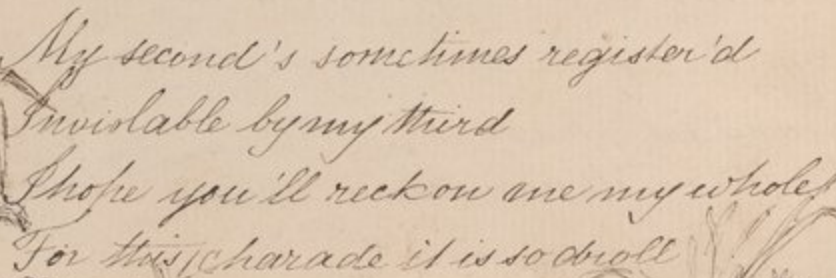 My second's sometimes register'd
Inviolable by my third
I hope you'll reckon me my whole
For this charade it is so droll